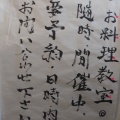 お料理教室◎
随時開催中
要予約・日時内
お問い合せ下さい